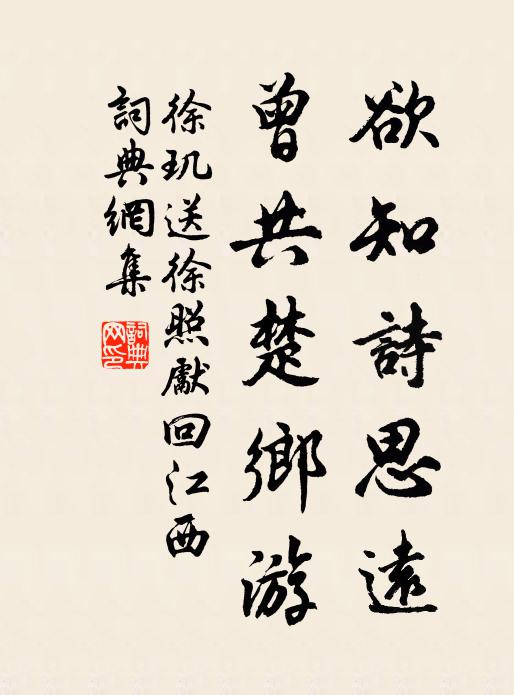 欲知詩思遠
曾共楚鄉游
徐玑送徐照獻回江西
詞典網集
詞典
网印